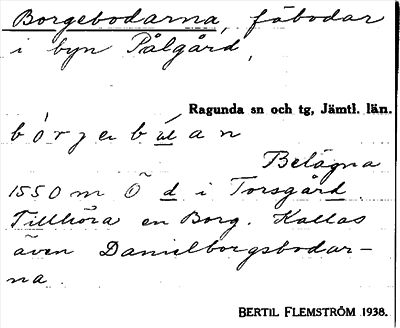 Borgebodarna, fäbodar
i byn Pålgård,
Ragunda sn och tg, Jämtl. län.
Belägna
1550 m Ö d i Torsgård.
Tillhöra en Borg. Kallas
även Danielborgsbodar-
na.
BERTIL FLEMSTRÖM 1938.